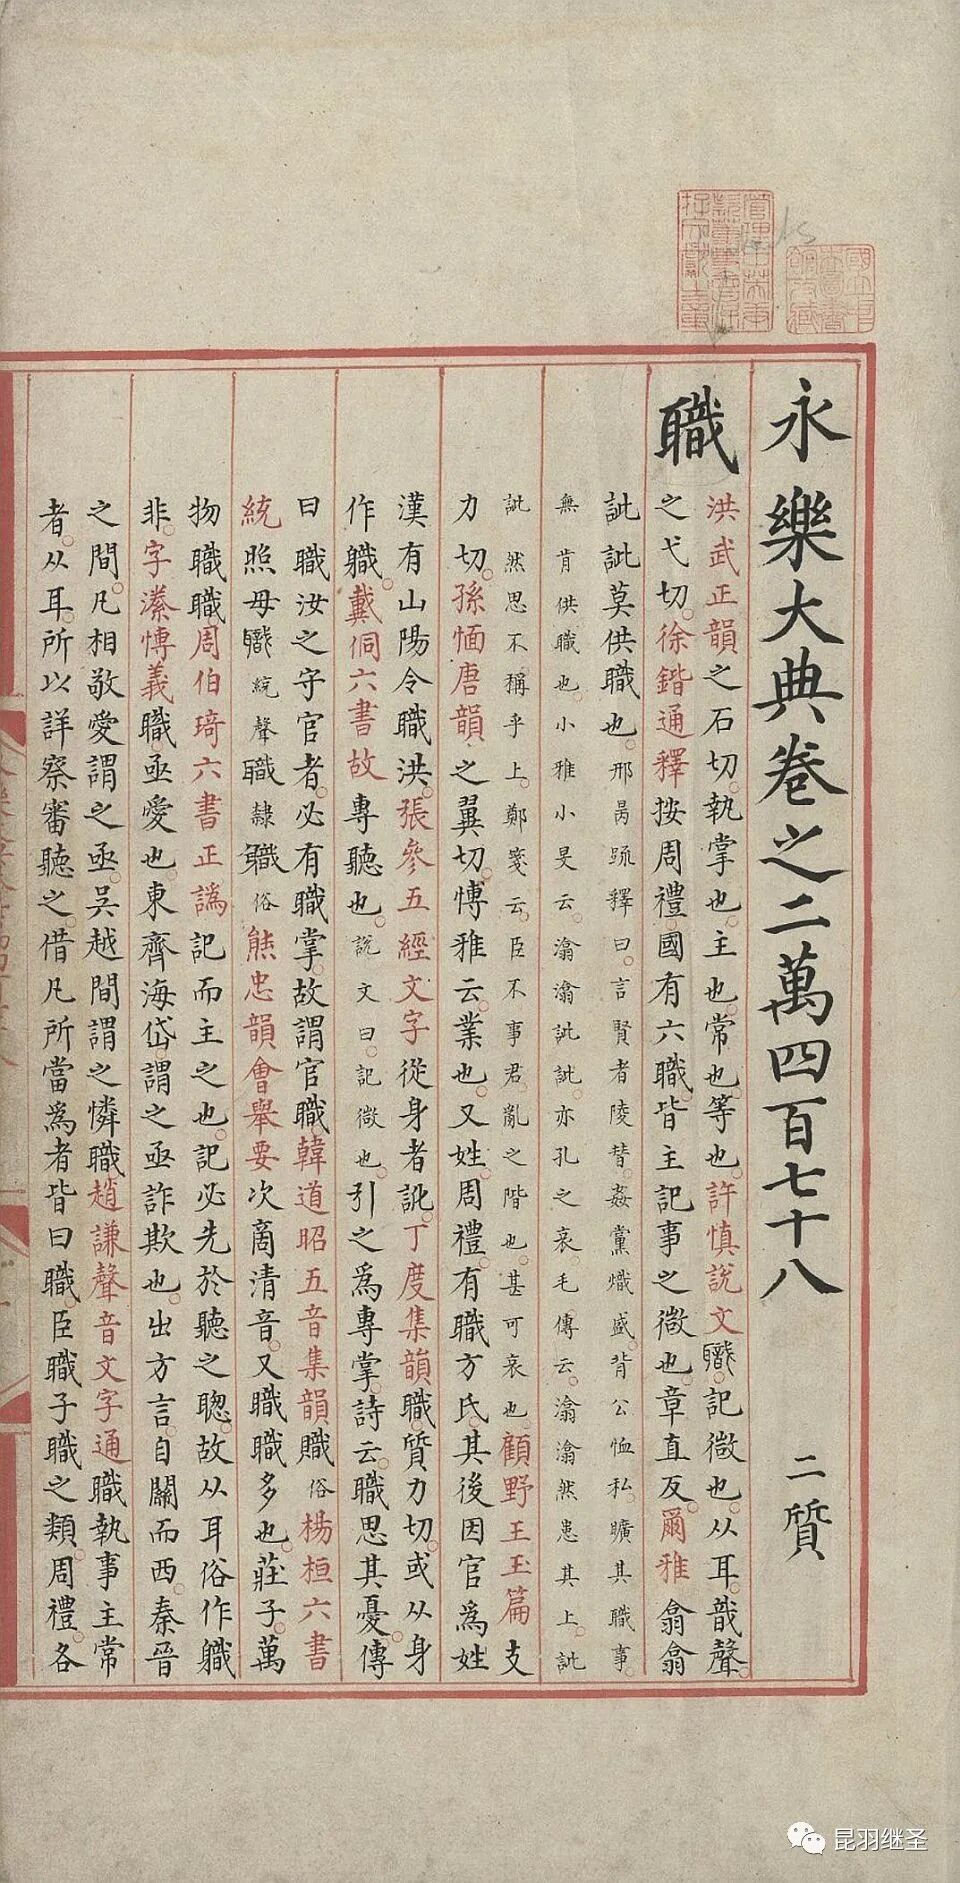 永樂大典卷之二萬四百七十八 二質
職
洪武正韻之石切。執掌也。主也。常也。等也。許慎說文職。記微也。从耳。戠聲。
之弋切。徐鍇通釋按周禮國有六職。皆主記事之微也。章直反。爾雅翕翕
訿訿莫供職也。邢昺疏釋曰。言賢者陵替。姦黨熾盛。背公恤私。曠其職事。
無肯供職也。小雅小旻云。潝潝訿訿。亦孔之哀。毛傳云。潝潝然患其上。訿
訿然思不稱乎上。鄭箋云。臣不事君。亂之階也。甚可哀也。顧野王玉篇支
力切。孫愐唐韻之翼切。博雅云。業也。又姓。周禮。有職方氏。其後因官為姓
漢有山陽令職洪。張參五經文字從身者訛。丁度集韻職。質力切。或从身
作軄。戴侗六書故專聽也。說文曰。記微也。引之為專掌。詩云。職思其憂。傳
曰職汝之守官者。必有職掌。故謂官職韓道昭五音集韻職俗楊桓六書
統照母職統聲職隸軄俗熊忠韻會舉要次商清音。又職職多也。莊子。萬
物職職周伯琦六書正譌記而主之也。記必先於聽之聰。故从耳俗作軄
非。字潫博義職。亟愛也。東齊海岱。謂之亟詐欺也。出方言。自關而西。秦晉
之間。凡相敬愛謂之亟。吳越間謂之憐職趙謙聲音文字通職執事主常
者。从耳。所以詳察審聽之。借凡所當為者皆曰職。臣職子職之類。周禮。各
國立北平圖書館收藏
昆羽继圣